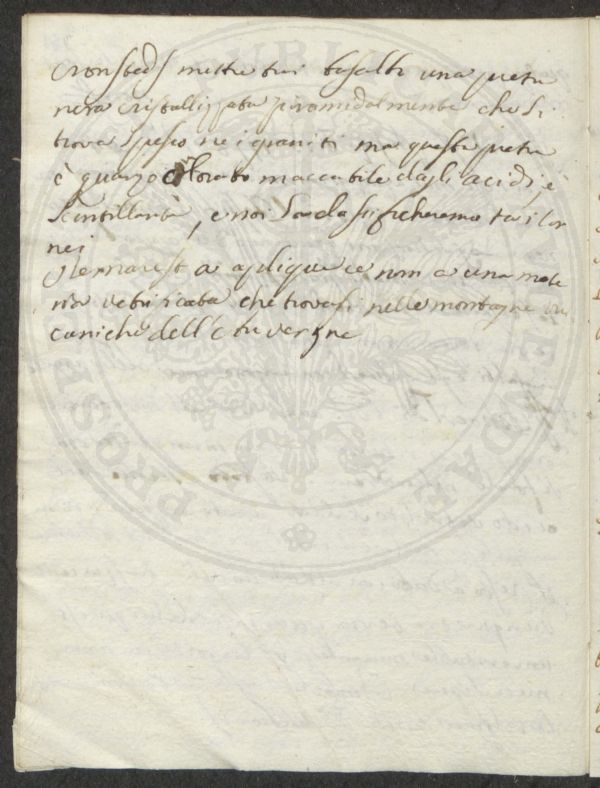 Cronsteds mette trai basalti una pietra
nera Cristallizzata piramidalmente che si
trova spesso nei graniti ma questa pietra
è quarzo colorato inaccabile dagli acidi, è
Scintillante, e noi la classificheremo tra i tor
nei
Demarest a aplique ce nom a una mate
ria vetrificata che trovasi nelle montagne vul
caniche dell'Auvergne